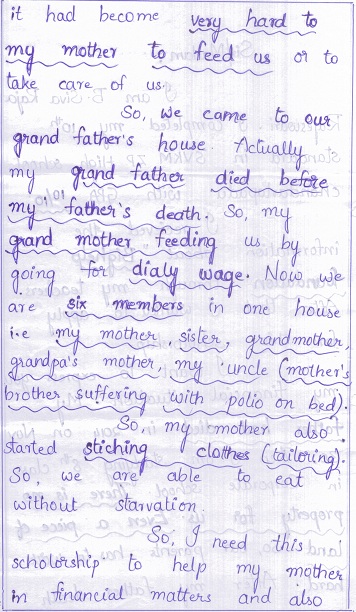 it had become very hard to
my mother to feed us or to
take care of us.
So, we came to our
grand father's house. Actually
my grand father died before
my father's death. So, my
grand mother feeding us by
going for dialy wage. Now we
are six members in one house
i.e my mother, sister, grandmother,
grandpa's mother, my uncle (mother's
brother suffering with polio on bed).
So, my mother also
started stiching clothes (tailoring).
So, we are able to eat
without starvation
So, I need this
scholorship to help my mother
in financial matters and also